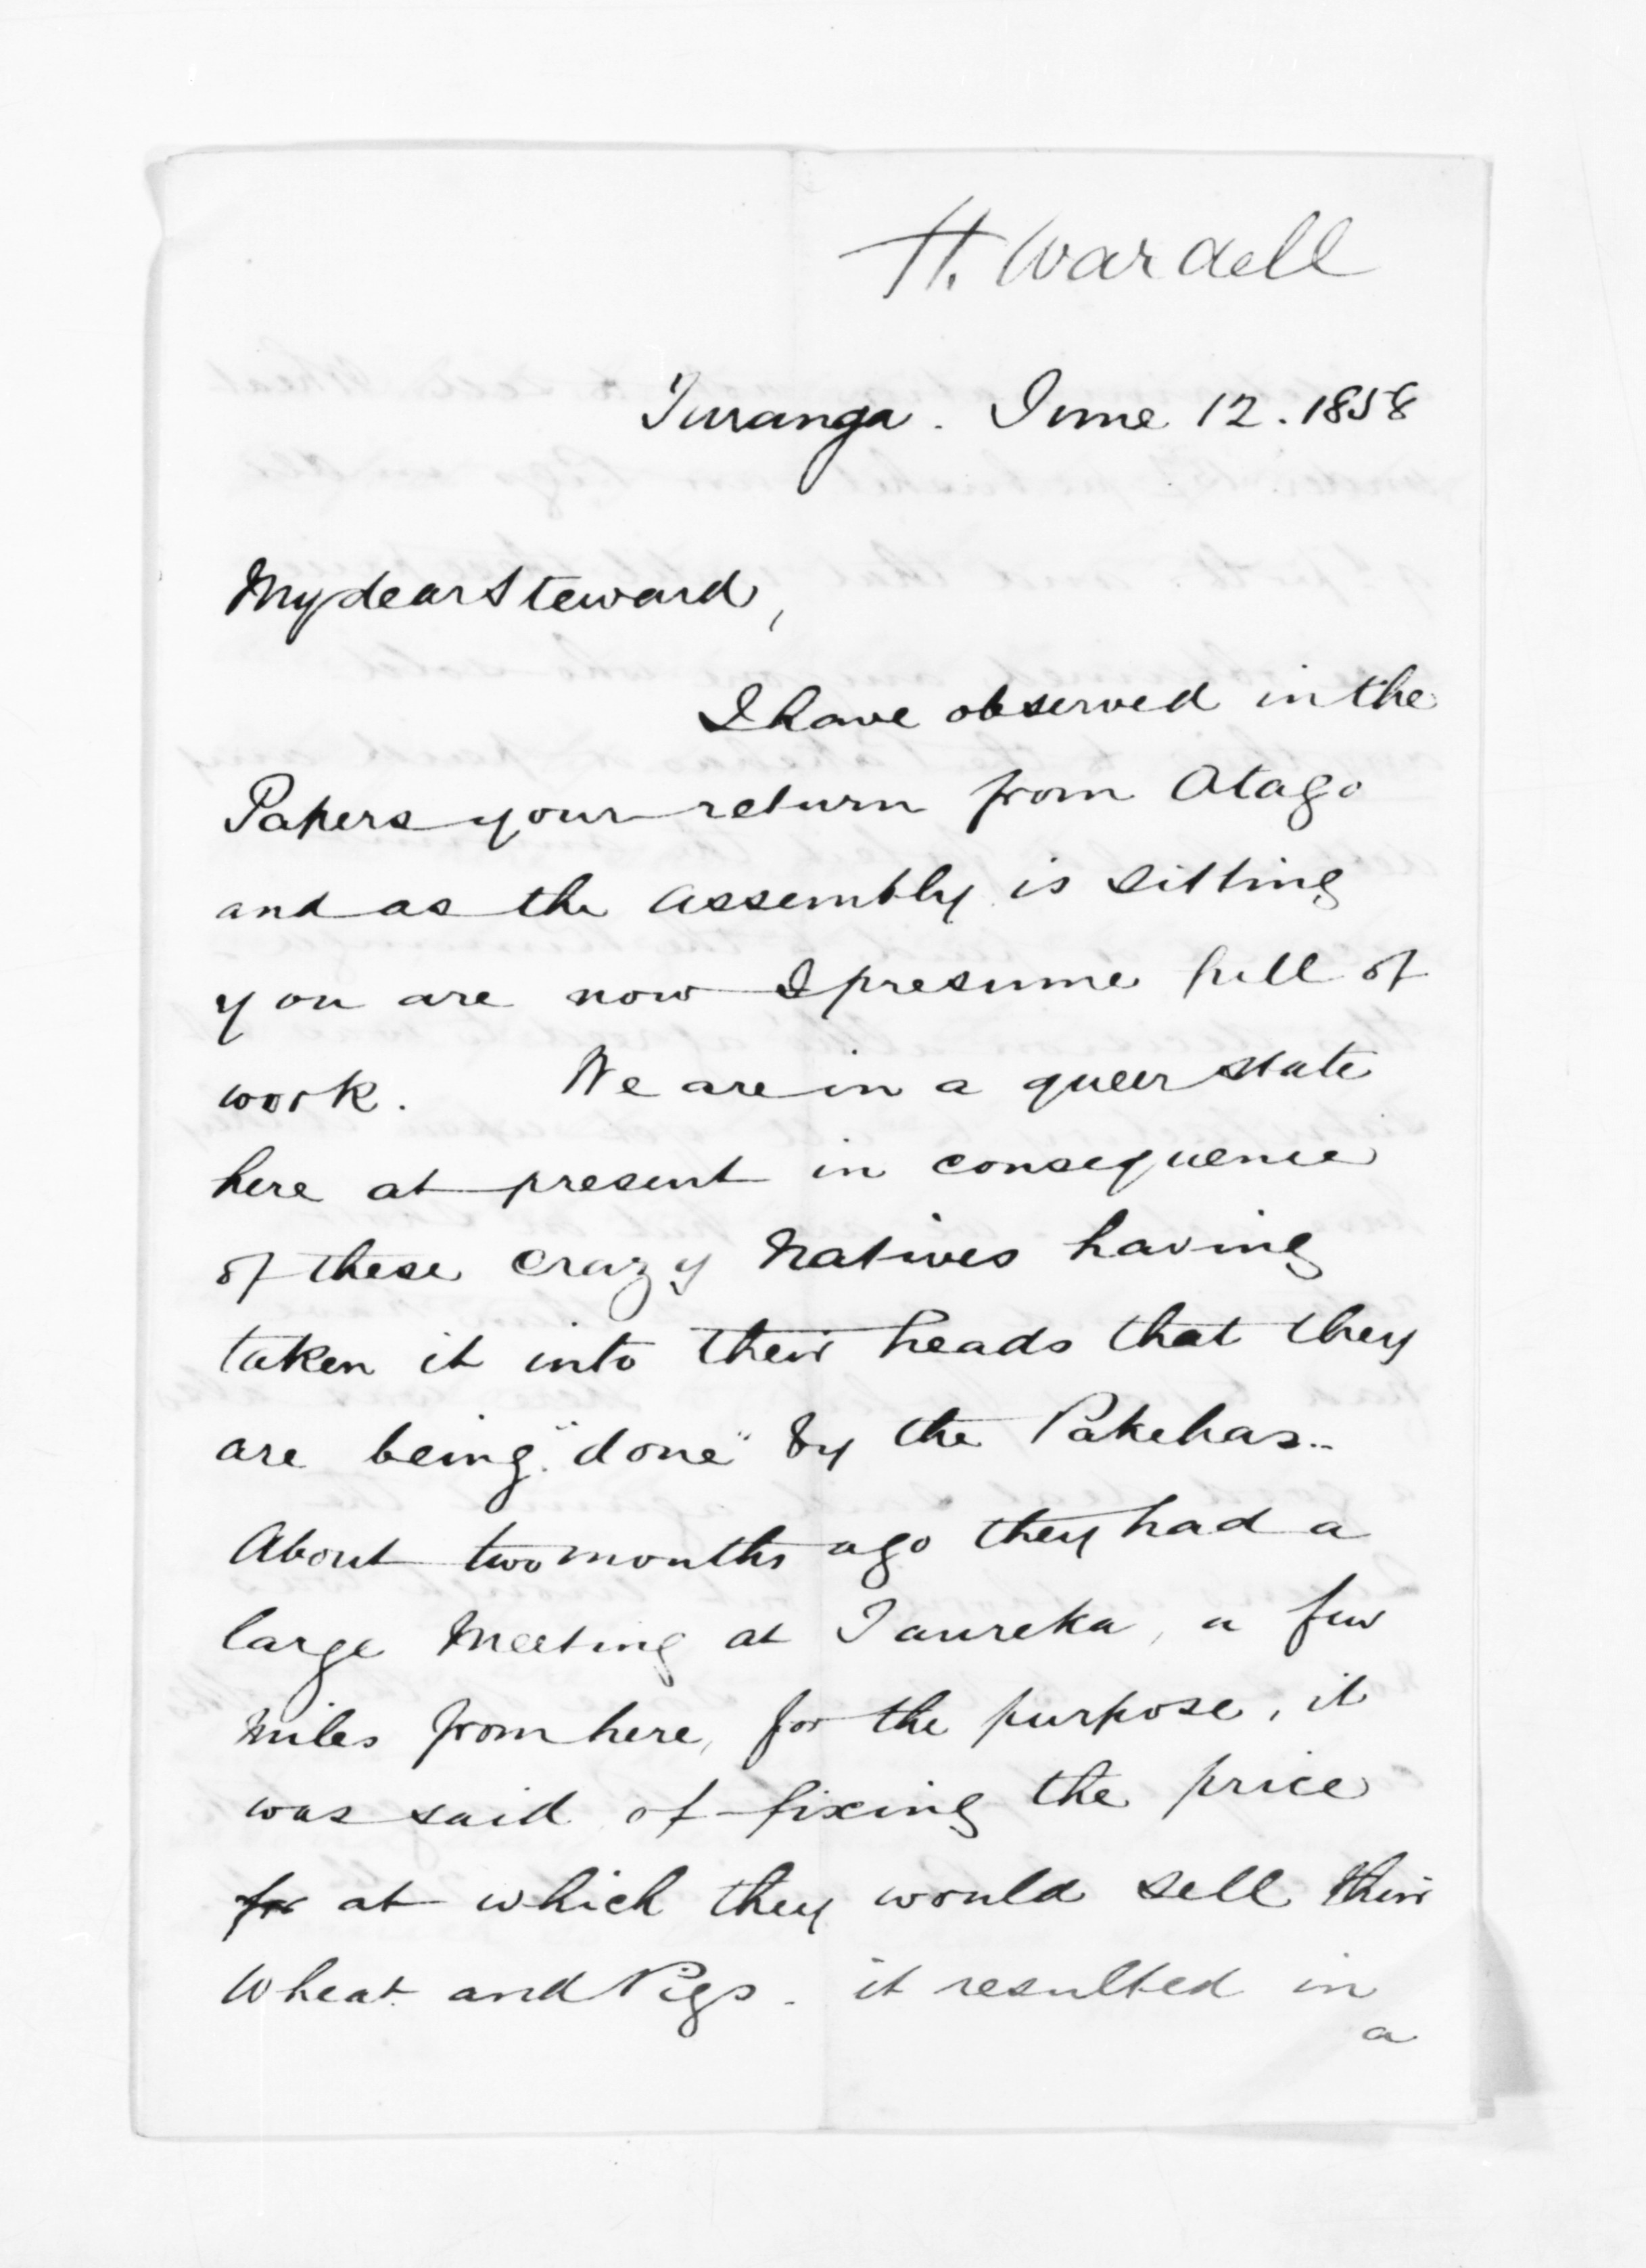 H. Wardell
Turanga. June 12. 1858
My dear Steward,
I have observed in the
Papers your return from Otago
and as the Assembly is sitting
you are now I presume full of
work. We are in a queer state
here at present in consequence
of these crazy Natives having
taken it into their heads that they
are being "done" by the Pakehas..
About two months ago they had a
large Meeting at Taureka, a few
miles from here, for the purpose, it
was said of fixing the price
for at which they would sell their
Wheat and Pigs. it resulted in
a